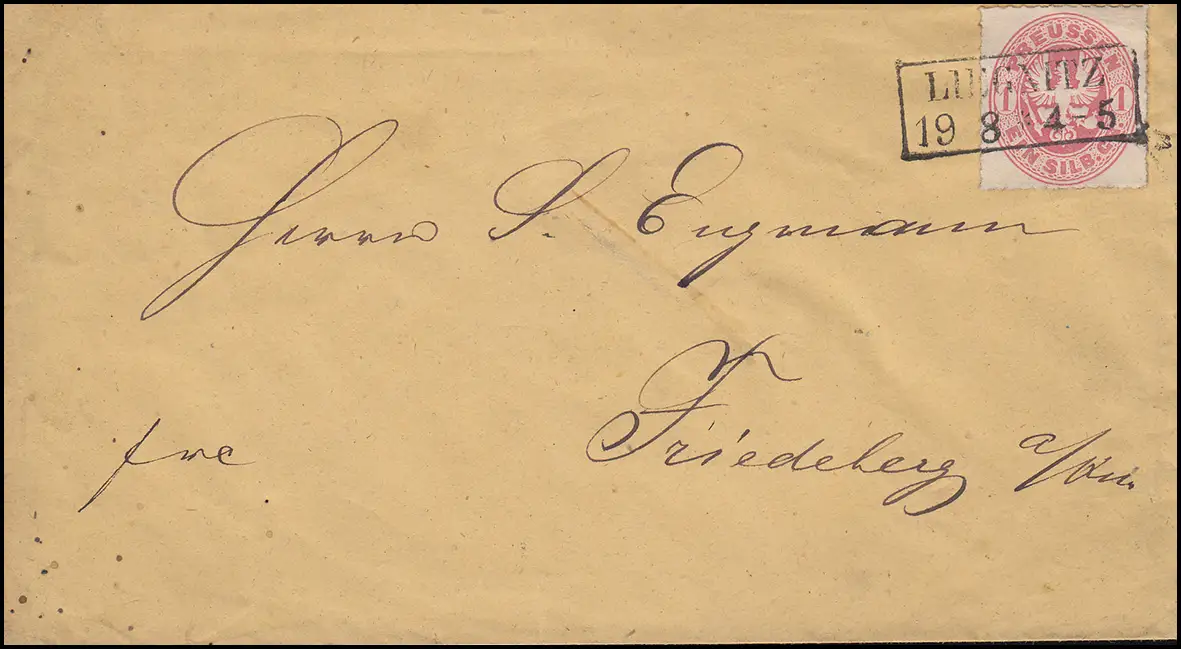 PREUSSEN
1 1
EIN SILB. GR.
LIEGNITZ
19 8 4-5
Herrn S. Engmann
Friedeberg a/
frc